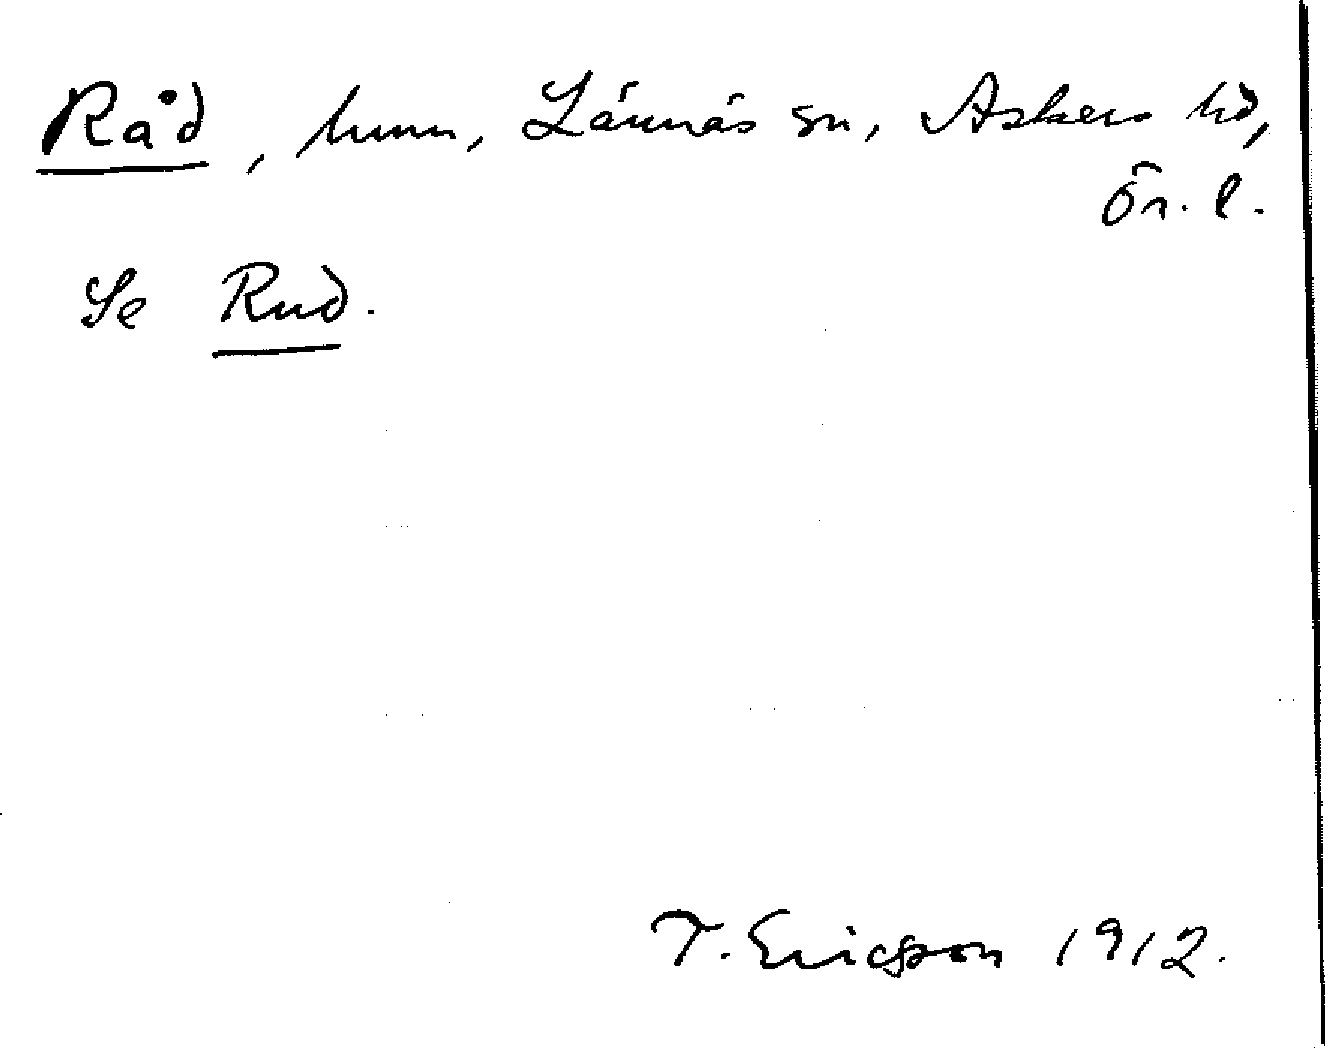 Råd, hmn, Lännäs sn, Askers hd,
Ör. l.
Se Rud.
T. Ericson 1912.